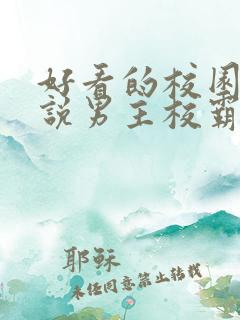 好看的校园
説男主校霸
耶稣
未经同意禁止转载